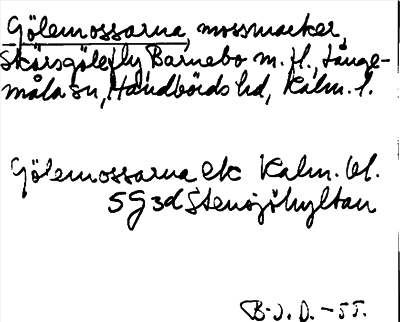 Gölemossarna, mossmarker,
Skärsgölefly Barnebo m.fl., Långe-
måla sn, Handbörds hd, Kalm. l.
Gölemossarna ek Kalm. bl.
5G3d Stensjöhyltan
B.J.D. -55.